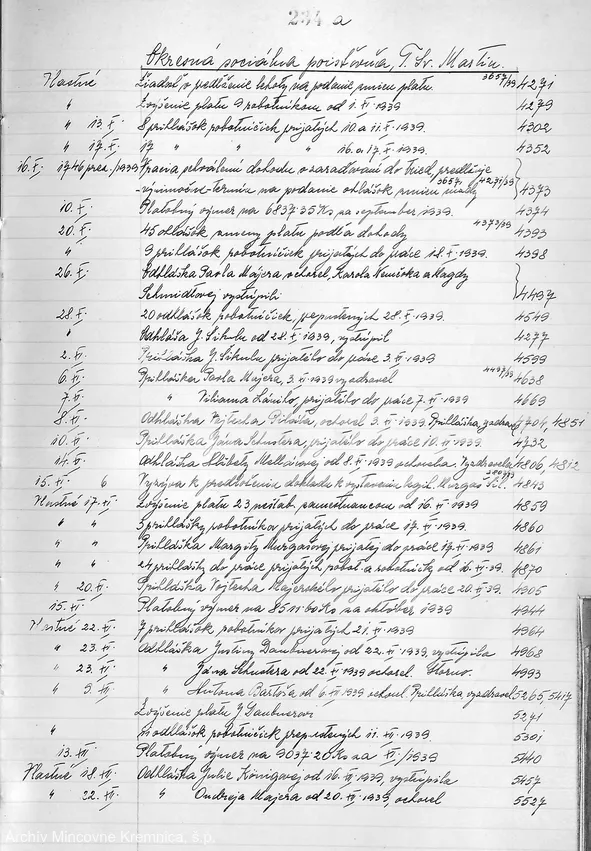 234 a
Okresná sociálna poisťovňa, T. Sv. Martin.
Vlastné Žiadosť o predĺženie lehoty na podanie zmien platu 3657/39 4271
" Zvýšenie platu 9 robotníkom od 1. X. 1939 4279
" 13. X. 8 prihlášok robotníčok prijatých 10 a 11. X. 1939. 4302
" 17. X. 17 " " 16. a 17. X. 1939. 4352
16. X. 1746 prez./1939 Vracia schválenú dohodu o zaraďovaní do tried, predlžuje
výnimočne termín na podanie ohlášok zmien mzdy 3657, 4271/39 4373
10. X. Platobný výmer na 6837·35 Ks na september 1939. 4374
20. X. 45 ohlášok zmeny platu podľa dohody 4373/39 4393
" 9 prihlášok robotníčiek prijatých do práce 18. X. 1939. 4398
26. X. Odhláška Pavla Majera, ochorel, Karola a Magdy
Schmidtovej vystúpili 4497
28. X. 20 odhlášok robotníčiek, prepustených 28. X. 1939. 4549
" Odhláška J. Sikulu od 28. X. 1939, vystúpil 4277
2. XI. Prihláška J. Sikulu prijatého do práce 3. XI. 1939 4599
6. XI. Prihláška Pavla Majera, 3. XI. 1939 vyzdravel 4497/39 4638
7. XI. " Viliama prijatého do práce 7. XI. 1939 4669
8. XI. Odhláška Vojtecha ochorel 3. XI. 1939. Prihláška, vyzdravel 4704, 4851
10. XI. Prihláška Jána Schustera, prijatého do práce 10. XI. 1939 4732
14. XI. Odhláška Alžbety od 8. XI. 1939 ochorela. Vyzdravela 4806, 4812
15. XI. 6 Vyzýva k predloženiu dokladu k vystaveniu legit. 4843
Vlastné 17. XI. Zvýšenie platu 23 zamestnancom od 16. XI. 1939 4859
" " 5 prihlášky robotníkov prijatých do práce 17. XI. 1939. 4860
" " Prihláška Margity Murgašovej prijatej do práce 17. XI. 1939 4861
" " 24 prihlášky do práce prijatých robot. a robotníčky od 16. XI. 39. 4870
" 20. XI. Prihláška Vojtecha Majerského prijatého do práce 20. XI. 39. 4905
15. XI. Platobný výmer na 8511·60 Ks na október 1939 4944
Vlastné 22. XI. 7 prihlášok robotníkov prijatých 21. XI. 1939 4964
" 23. XI. Odhláška Justíny Daubnerovej od 22. XI. 1939, vystúpila 4968
" 23. XI. " Jána Schustera od 22. XI. 1939 ochorel. Storno. 4993
" 9. XII. " Antona Bartoša od 6. XII. 1939 ochorel. Prihláška vyzdravel 5265, 5417
Zvýšenie platu J. Daubnerovi 5271
" odhlášok robotníčiek prepustených 11. XII. 1939. 5301
13. XII. Platobný výmer na 9037·20 Ks na XI./1939 5440
Vlastné 18. XII. Odhláška Julie Königovej od 16. XII. 1939, vystúpila 5457
" 22. XII. " Ondreja Majera od 20. XII. 1939, ochorel 5527
Archív Mincovne Kremnica, š.p.